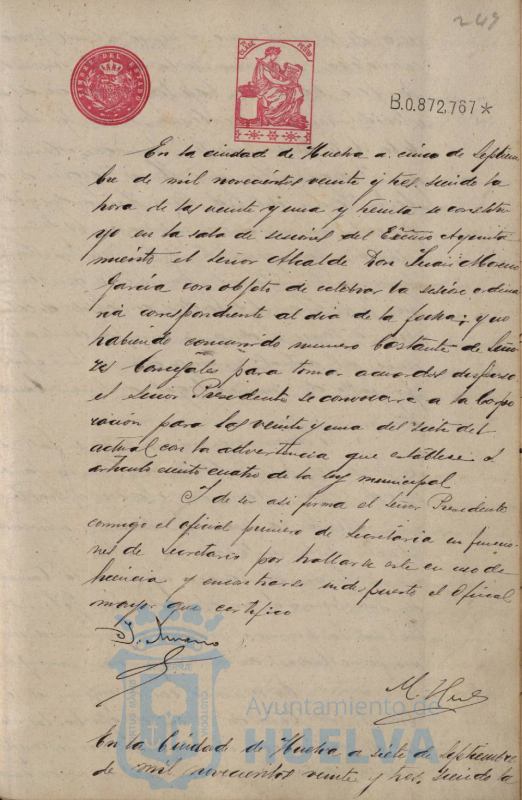 249
TIMBRE DEL ESTADO
CLASE
PESETA
B.0.872,767*
En la ciudad de Huelva a cinco de Septiem
bre de mil novecientos veinte y tres, siendo la
hora de las veinte y una y treinta se constitu
yo en la sala de sesiones del Excmo Ayunta
miento el señor Alcalde Don Juan Moreno
García con objeto de celebrar la sesión ordina
ria correspondiente al día de la fecha; y no
habiendo concurrido numero bastante de Seño
res Concejales para tomar acuerdos dispuso
el señor Presidente se convocará a la Corpo
ración para las veinte y una del siete del
actual con la advertencia que establece el
articulo ciento cuatro de la ley municipal
Y de ser asi firma el Señor Presidente
conmigo el oficial primero de Secretaria en funcio
nes de Secretario por hallarse este en uso de
licencia y encontrarse indispuesto el Oficial
mayor que certifico
J. Moreno
M. Huel
Ayuntamiento de
HUELVA
En la Ciudad de Huelva a siete de Septiembre
de mil novecientos veinte y tres, siendo la